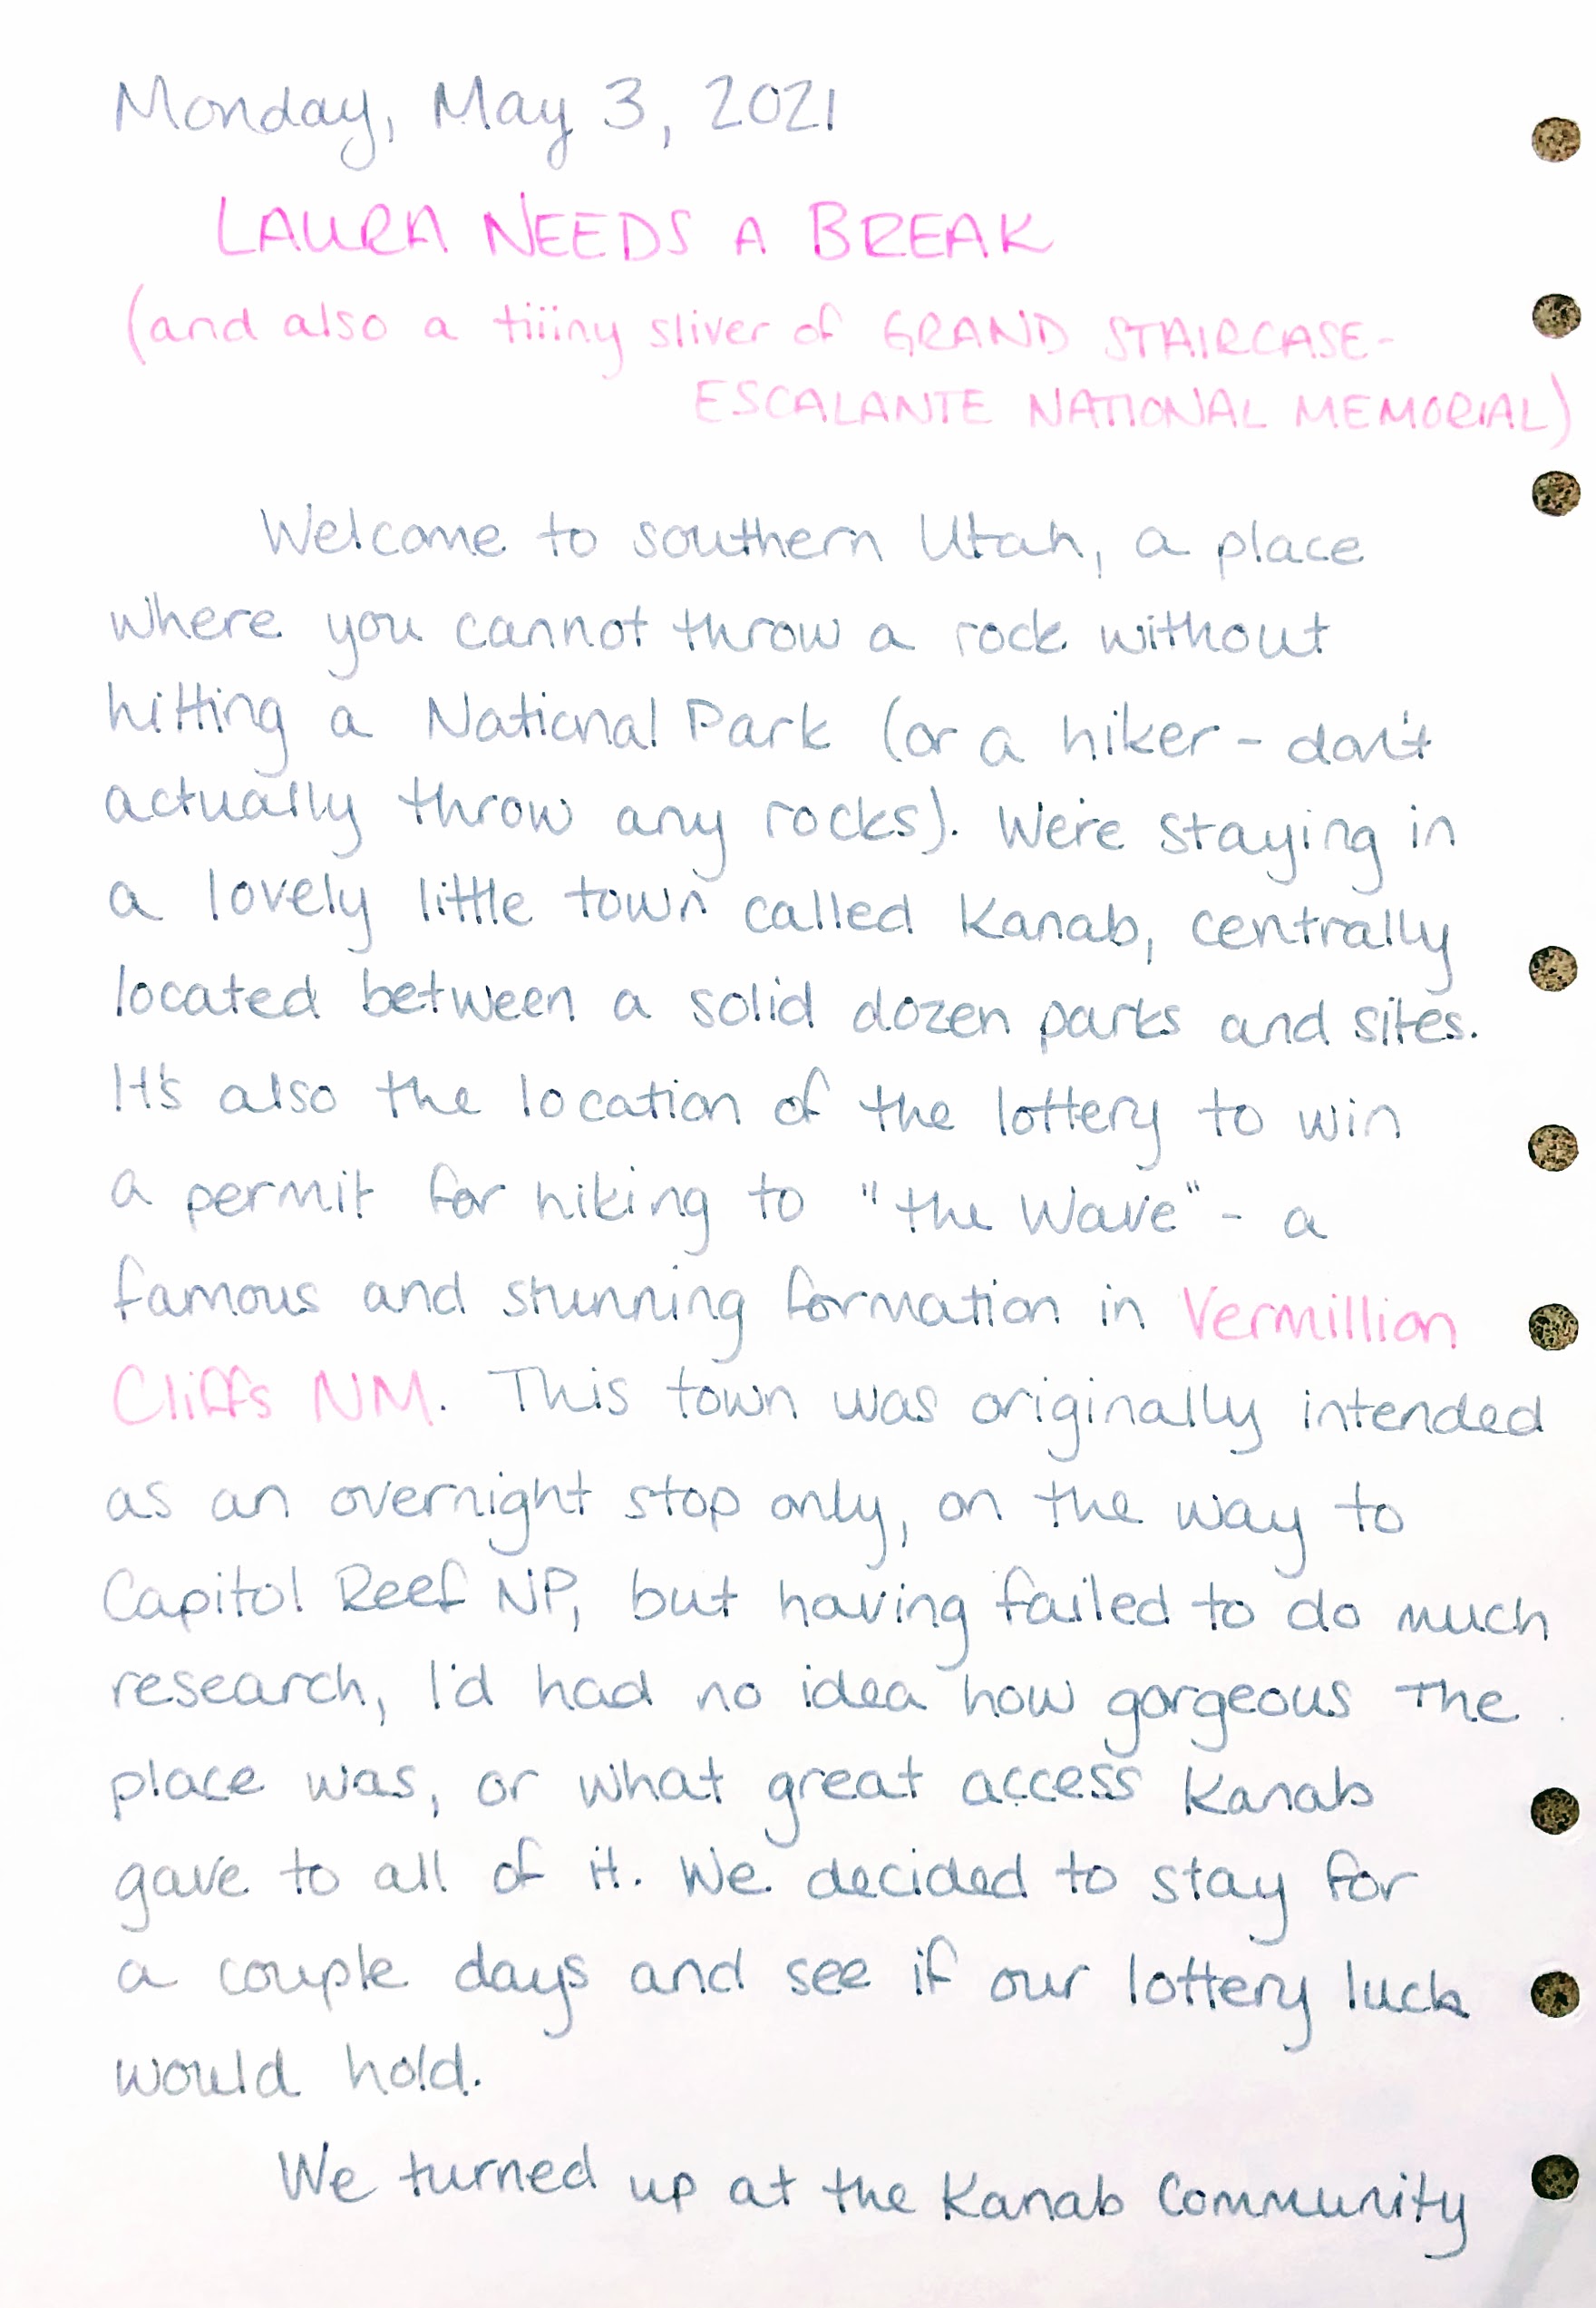 Monday, May 3, 2021
LAURA NEEDS A BREAK
(and also a tiiiny sliver of GRAND STAIRCASE-
ESCALANTE NATIONAL MEMORIAL)
Welcome to southern Utah, a place
where you cannot throw a rock without
hitting a National Park (or a hiker - don't
actually throw any rocks). We're staying in
a lovely little town called Kanab, centrally
located between a solid dozen parks and sites.
It's also the location of the lottery to win
a permit for hiking to "the Wave" - a
famous and stunning formation in Vermillion
Cliffs NM. This town was originally intended
as an overnight stop only, on the way to
Capitol Reef NP, but having failed to do much
research, I'd had no idea how gorgeous the
place was, or what great access Kanab
gave to all of it. We decided to stay for
a couple days and see if our lottery luck
would hold.
We turned up at the Kanab Community